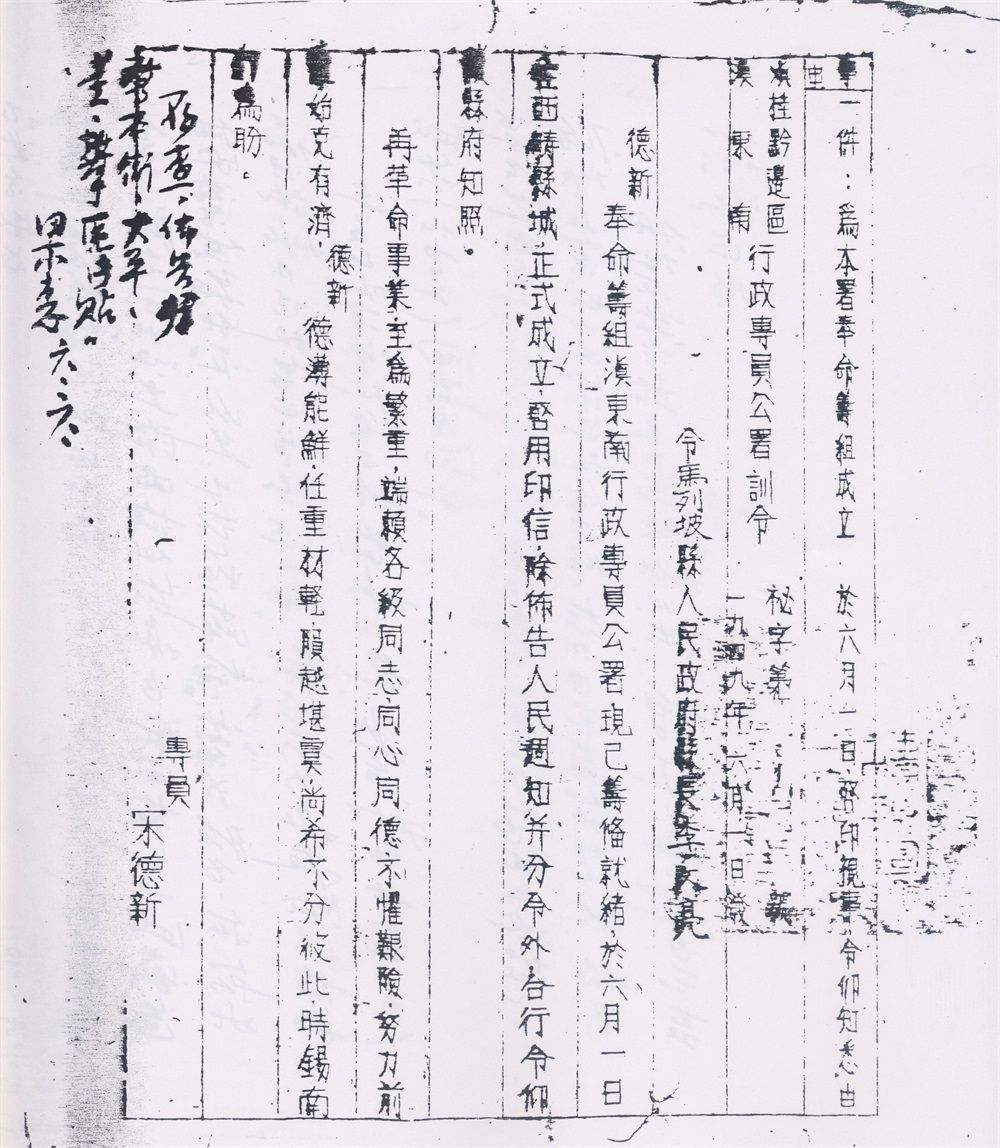 事由
一件：爲本署奉命籌組成立 於六月一日啓印視事令仰知悉由
滇桂黔邊區
滇東南
行政專員公署訓令
祕字第 號
一九四九年六月一日發
令馬列坡縣人民政府縣長李
德新
奉命籌組滇東南行政專員公署現已籌備就緒，於六月一日
在西疇縣城正式成立，啓用印信，除佈告人民週知并分令外，合行令仰
該縣府知照。
再革命事業至爲繁重，端賴各級同志，同心同德，不懼艱險，努力前
始克有濟，
德新
德薄能鮮，任重材輕，隕越堪虞，尚希不分彼此，時錫南
針爲盼。
專員
宋德新
存查，佈告
本街，大平、
董、 貼。
六、六、